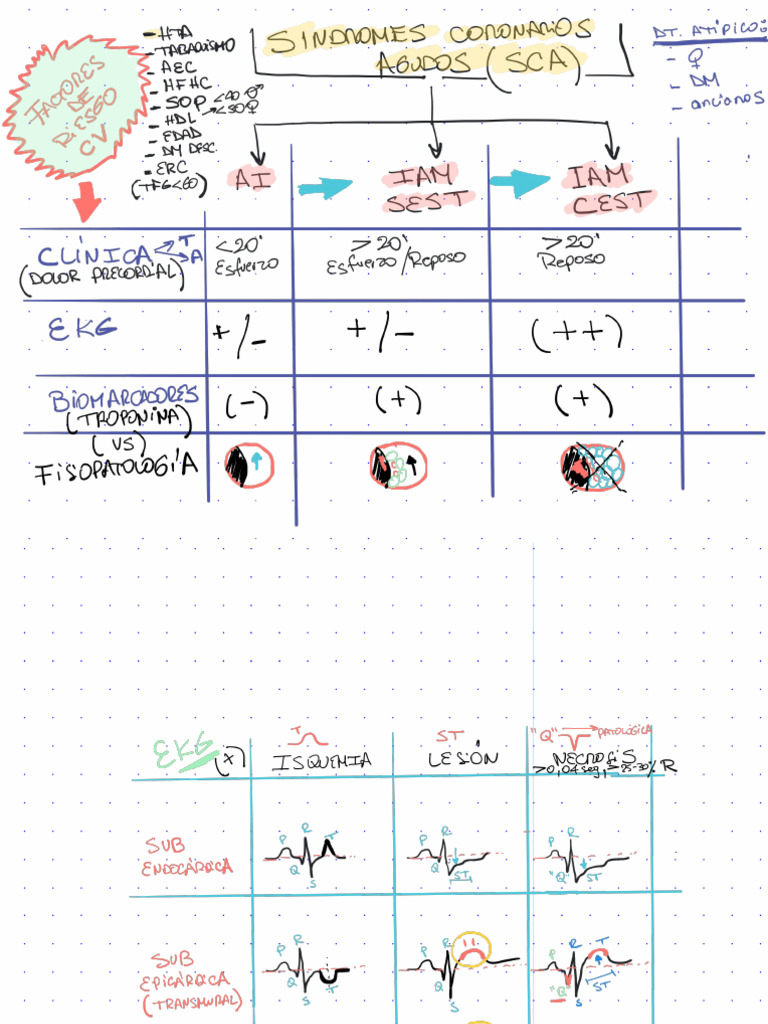 SINDROMES CORONARIOS
AGUDOS (SCA)
FACTORES
DE
RIESGO
CV
- HTA
- TABAQUISMO
- AEC
- HFHC
- SOP <40 ♂
<50 ♀
- HDL
- EDAD
- DM DESC.
- ERC
(TFG<60)
DT. ATÍPICO:
- ♀
- DM
- ancianos
AI
IAM
SEST
IAM
CEST
CLÍNICA T
A
(DOLOR PRECORDIAL)
<20'
Esfuerzo
>20'
Esfuerzo/Reposo
>20'
Reposo
EKG
+/-
+/-
(++)
BIOMARCADORES
(TROPONINA)
(-)
(+)
(+)
(VS)
FISOPATOLOGÍA
EKG (+)
T
ISQUEMIA
ST
LESÓN
"Q" PATOLÓGICA
NECROSIS
>0,04seg, ≥25-30% R
SUB
ENDOCÁRDICA
P R T
Q S
P R
Q ST
P R
"Q" ST
SUB
EPICÁRDICA
(TRANSMURAL)
P R
Q S T
P R
Q S
P R T
"Q" S ST